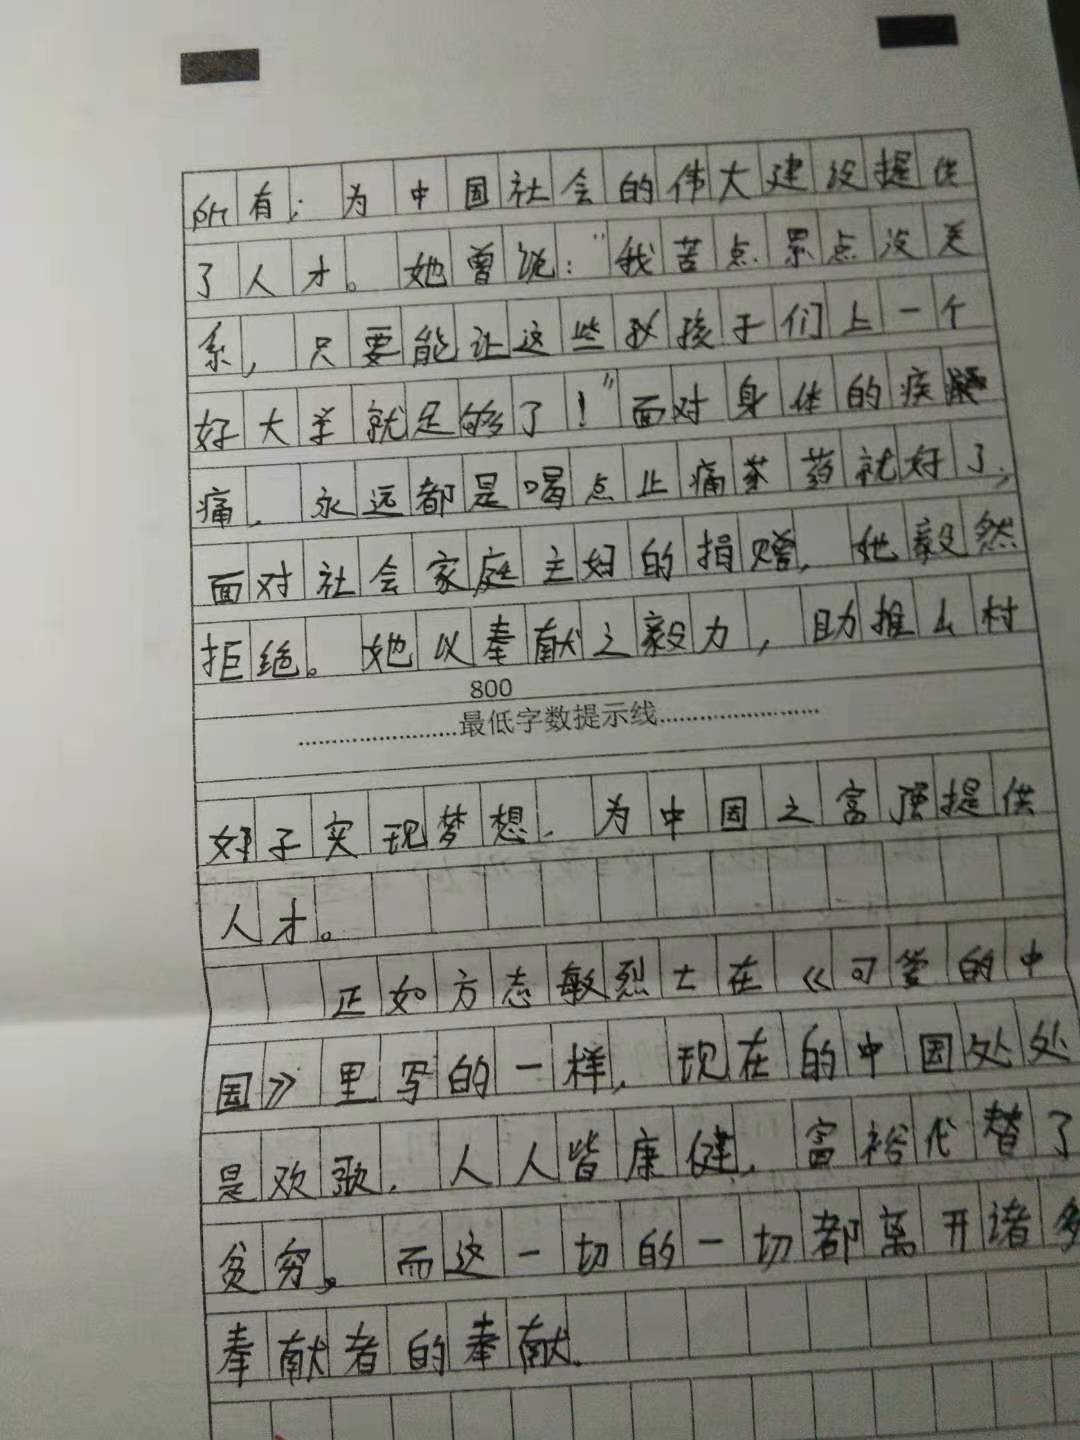 所有；为中国社会的伟大建设提供
了人才。她曾说："我苦点累点没关
系，只要能让这些孩子们上一个
好大学就足够了！"面对身体的疾
痛，永远都是喝点止痛药就好了，
面对社会家庭主妇的捐赠，她毅然
拒绝。她以奉献之毅力，助推山村
800
最低字数提示线
好子实现梦想，为中国之富强提供
人才。
正如方志敏烈士在《可爱的中
国》里写的一样，现在的中国处处
是欢歌，人人皆康健，富裕代替了
贫穷。而这一切的一切都离开诸多
奉献者的奉献。